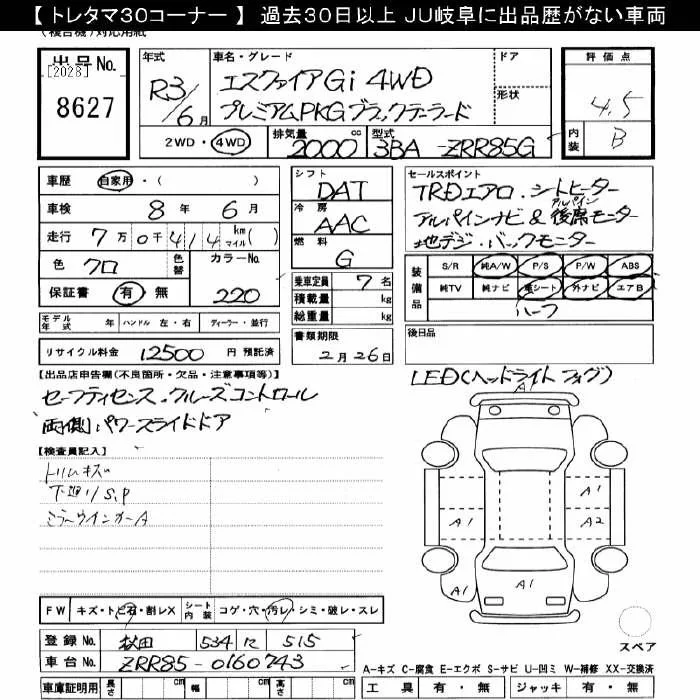 【 トレタマ30コーナー 】 過去30日以上 JU岐阜に出品歴がない車両
(複合機)対応用紙
出品No.
[2028]
8627
年式
R3/6月
車名・グレード
エスクァイアGi 4WD
プレミアムPKG ブラックテーラード
ドア
形状
評価点
4.5
内装
B
2WD・4WD
排気量
2000 cc
型式
3BA-ZRR85G
車歴 自家用・( )
車検 8年 6月
走行 7万0千414 km マイル( )
色 クロ
色替
カラーNo. 220
保証書 有・無
シフト
DAT
冷房
AAC
燃料
G
乗車定員 7名
積載量 kg
総重量 kg
セールスポイント
TRDエアロ・シートヒーター
アルパインナビ & アルパイン後席モニター
地デジ・バックモニター
装備品
S/R 純A/W P/S P/W ABS
純TV 純ナビ 革シート 外ナビ エアB
ハーフ
モデル年式 年 ハンドル 左・右 ディーラー・並行
リサイクル料金 12500 円 預託済
書類期限
2月26日
後日品
【出品店申告欄(不良箇所・欠品・注意事項等)】
セーフティセンス・クルーズコントロール
両側パワースライドドア
LED(ヘッドライト フォグ)
【検査員記入】
トリムキズ
下廻りS,P
ミラーウインカーA
A1
A1
A1
A2
A1
A1
スペア
FW キズ・トビ石・割レX
シート内装 コゲ・穴・汚レ・シミ・破レ・スレ
登録No. 秋田 534 に 515
車台No. ZRR85-0160743
車庫証明用 長さ cm 幅 cm 高さ cm
A-キズ C-腐食 E-エクボ S-サビ U-凹ミ W-補修 XX-交換済
工具 有・無 ジャッキ 有・無